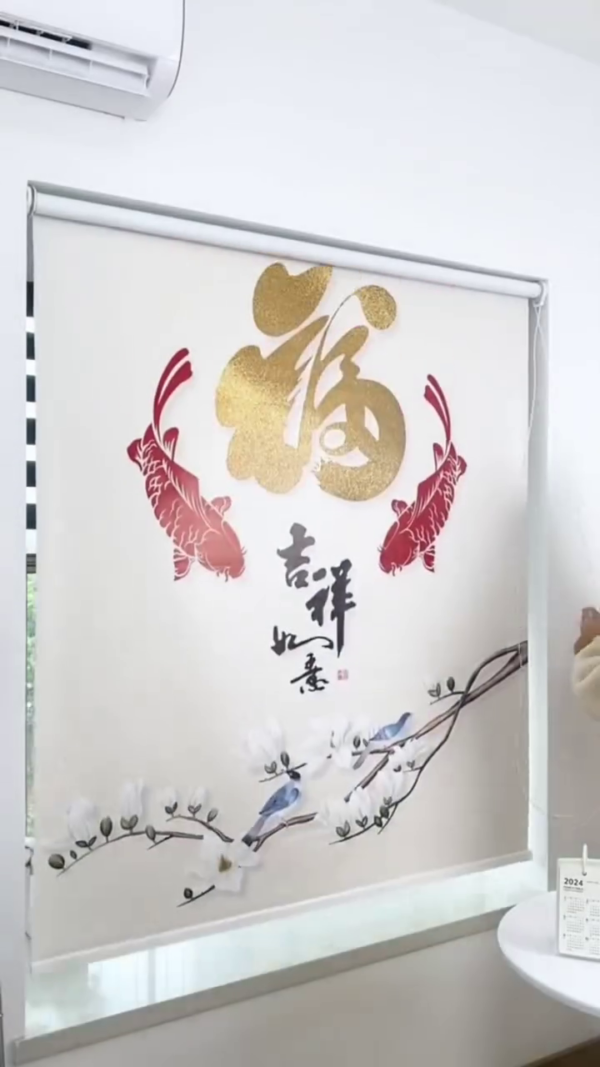 福
吉祥
如意
2024